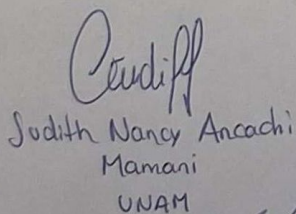 Judith Nancy Ancachi
Mamani
UNAM